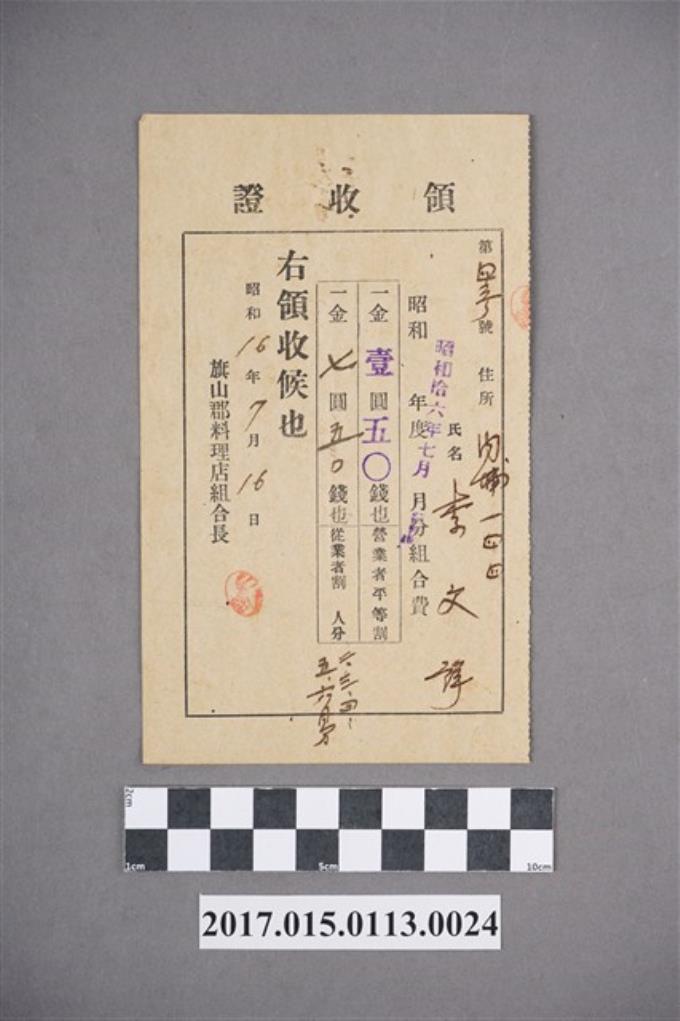 領收證
第 號 住所 內埔一四四
氏名 李文
昭和拾六年七月
昭和 年度 月分組合費
一金壹圓五〇錢也 營業者平等割
一金七圓五〇錢也 從業者割 人分
二、三、四、
五、六月分
右領收候也
昭和16年7月16日
旗山郡料理店組合長
2cm
1cm 5cm 10cm
2017.015.0113.0024